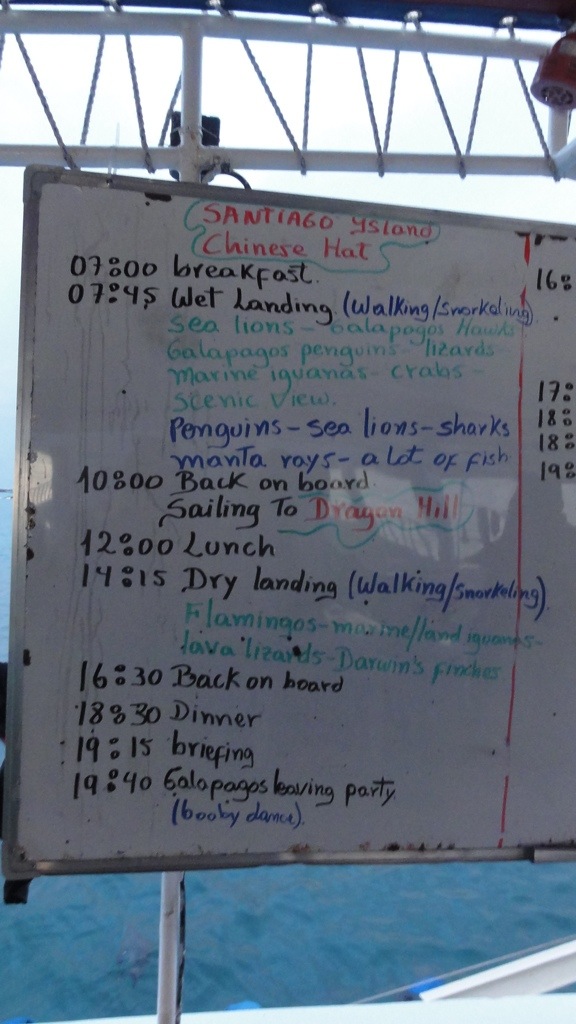 SANTIAGO Ysland
Chinese Hat
07:00 breakfast.
07:45 Wet Landing (Walking/Snorkeling)
Sea lions - Galapagos Hawks
Galapagos penguins - lizards
marine iguanas - crabs -
Scenic View.
Penguins - sea lions - sharks
manta rays - a lot of fish
10:00 Back on board.
Sailing To Dragon Hill
12:00 Lunch
14:15 Dry landing (Walking/snorkeling)
Flamingos - marine/land iguanas -
lava lizards - Darwin's finches
16:30 Back on board
18:30 Dinner
19:15 briefing
19:40 Galapagos leaving party
(booby dance).
16:
17:
18:
18:
19: